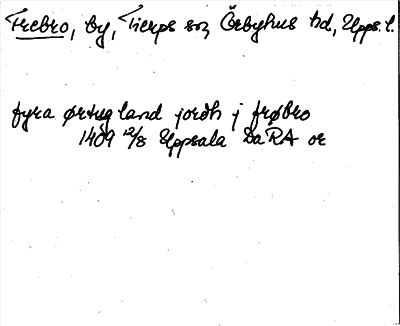 Frebro, by, Tierps sn, Örbyhus hd, Upps. l.
fyra ørtug land jordh j frøbro
1409 12/8 Uppsala DaRA or